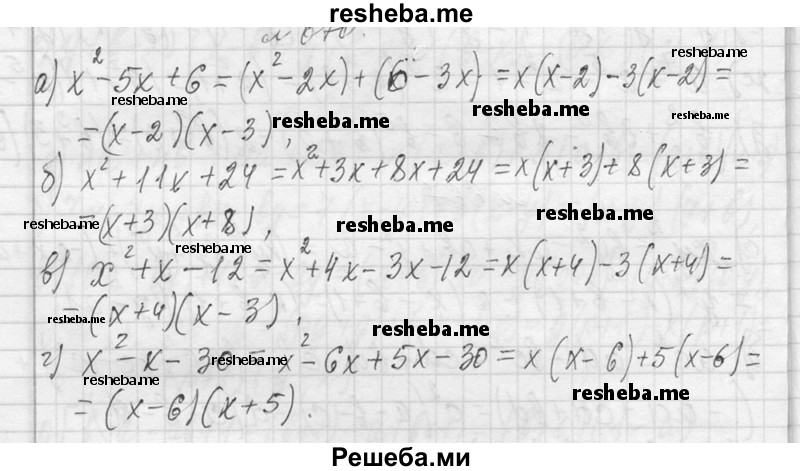 resheba.me
а) x² - 5x + 6 = (x² - 2x) + (6 - 3x) = x(x-2) - 3(x-2) =
resheba.me
resheba.me
resheba.me
= (x-2)(x-3),
resheba.me
б) x² + 11x + 24 = x² + 3x + 8x + 24 = x(x+3) + 8(x+3) =
resheba.me
resheba.me
= (x+3)(x+8),
resheba.me
resheba.me
в) x² + x - 12 = x² + 4x - 3x - 12 = x(x+4) - 3(x+4) =
resheba.me
= (x+4)(x-3),
resheba.me
г) x² - x - 30 = x² - 6x + 5x - 30 = x(x-6) + 5(x-6) =
resheba.me
resheba.me
resheba.me
= (x-6)(x+5).
Решеба.ми